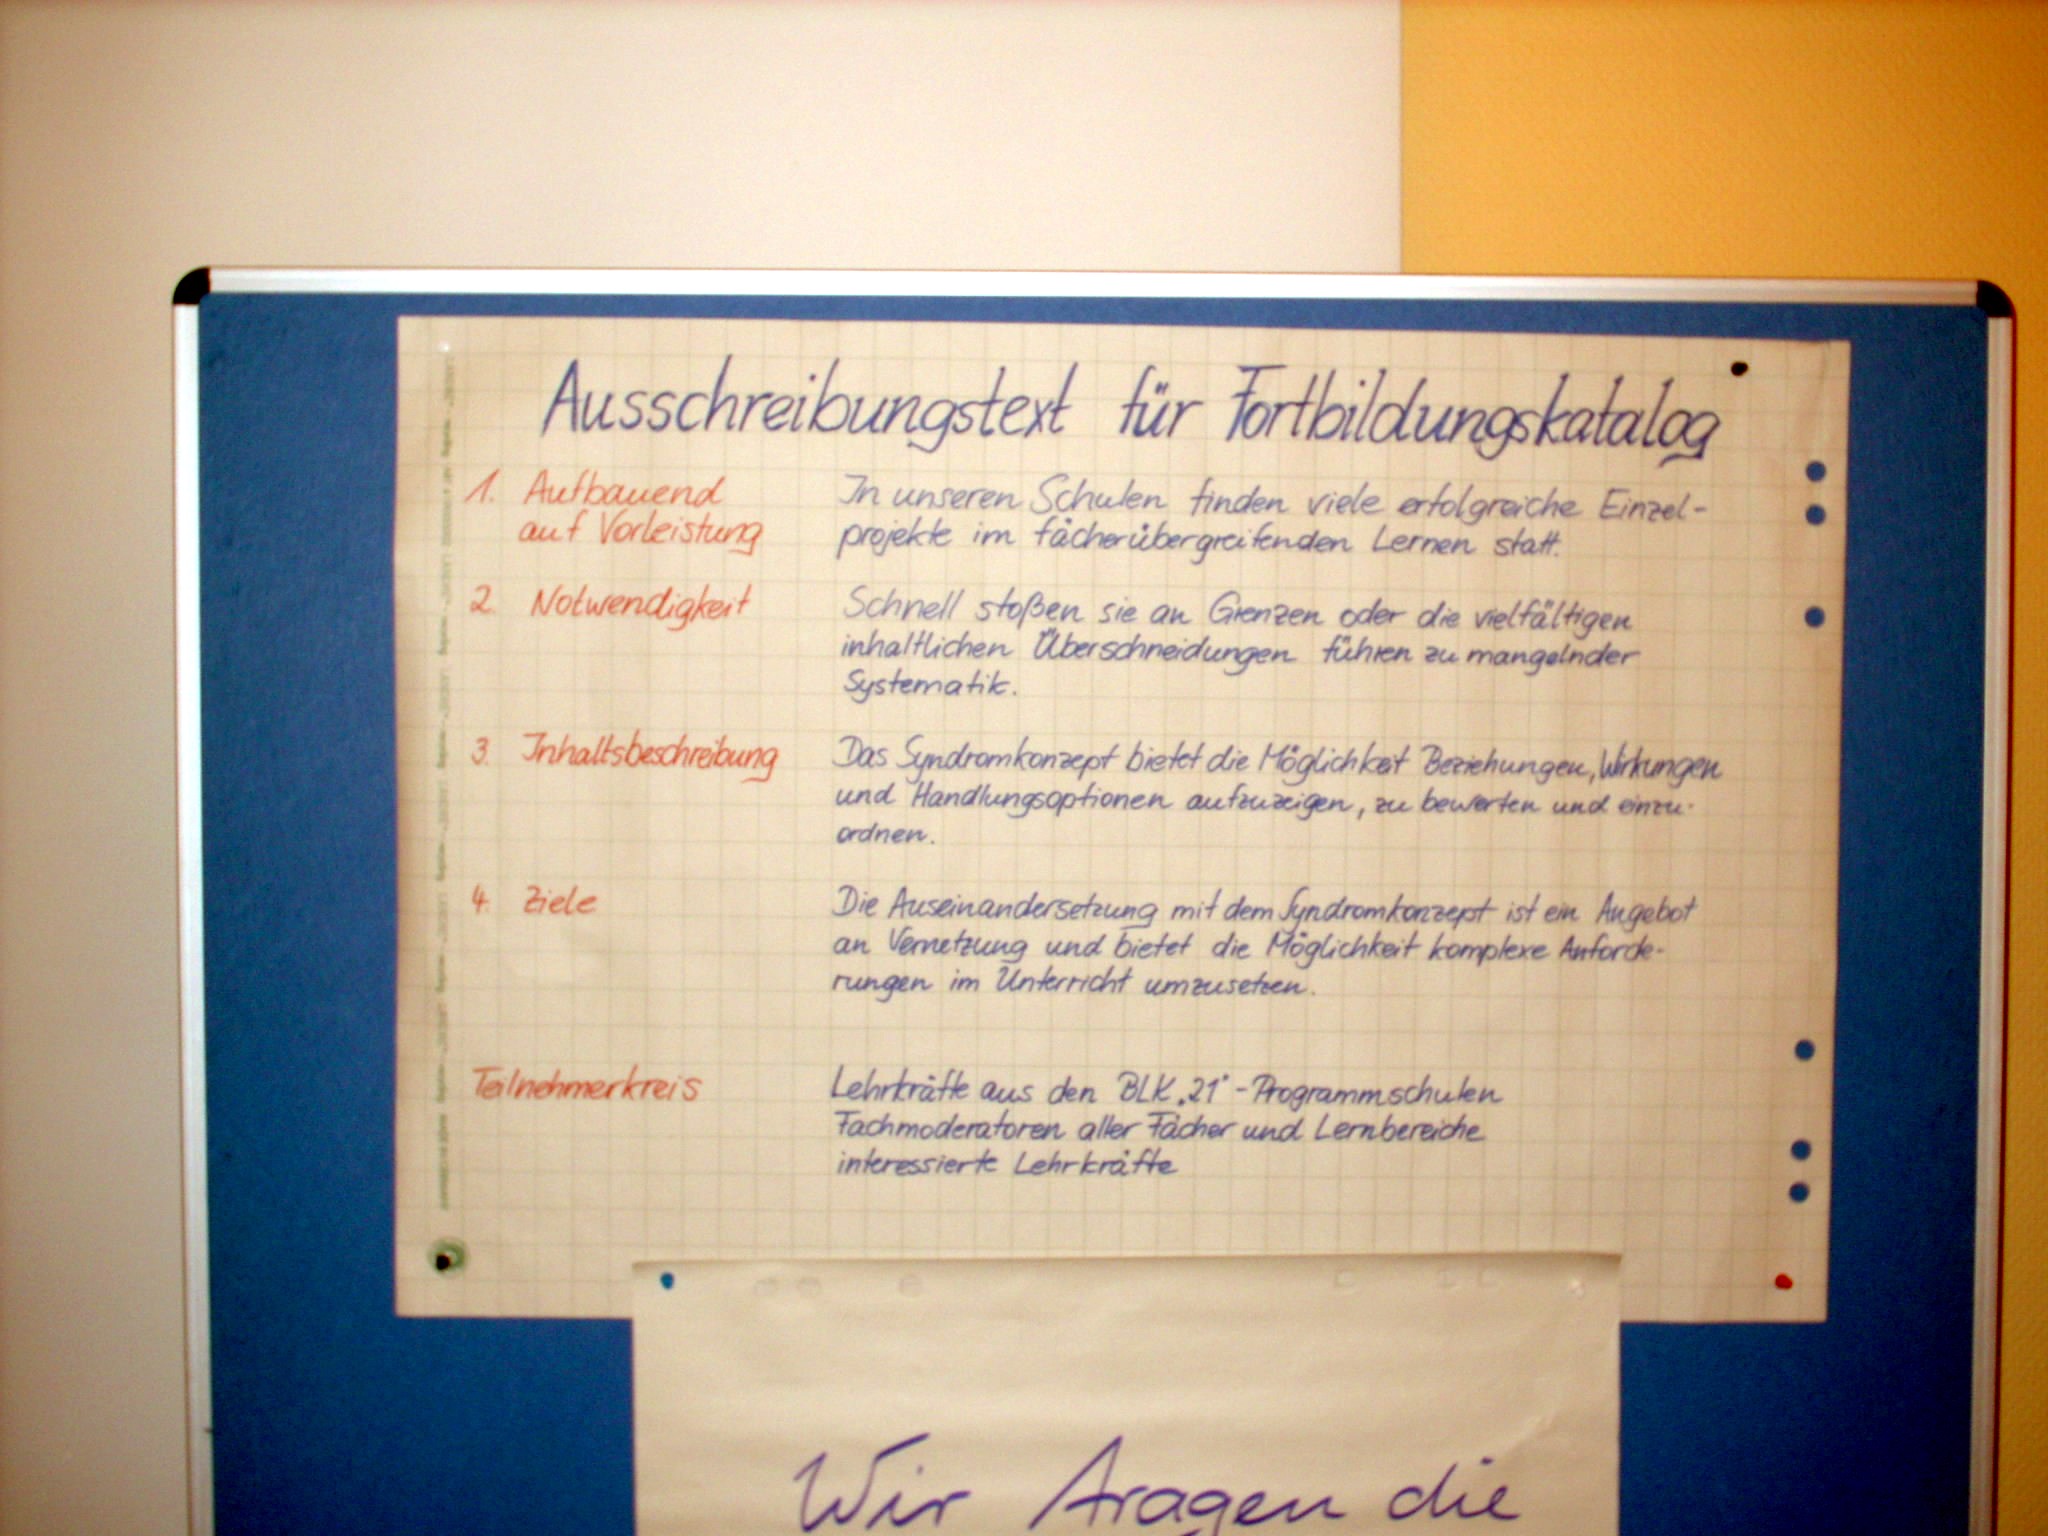 Ausschreibungstext für Fortbildungskatalog
1. Aufbauend
auf Vorleistung
In unseren Schulen finden viele erfolgreiche Einzel-
projekte im fächerübergreifenden Lernen statt.
2. Notwendigkeit
Schnell stoßen sie an Grenzen oder die vielfältigen
inhaltlichen Überschneidungen führen zu mangelnder
Systematik.
3. Inhaltsbeschreibung
Das Syndromkonzept bietet die Möglichkeit Beziehungen, Wirkungen
und Handlungsoptionen aufzuzeigen, zu bewerten und einzu-
ordnen.
4. Ziele
Die Auseinandersetzung mit dem Syndromkonzept ist ein Angebot
an Vernetzung und bietet die Möglichkeit komplexe Anforde-
rungen im Unterricht umzusetzen.
Teilnehmerkreis
Lehrkräfte aus den BLK „21"-Programmschulen
Fachmoderatoren aller Fächer und Lernbereiche
interessierte Lehrkräfte
Wir die